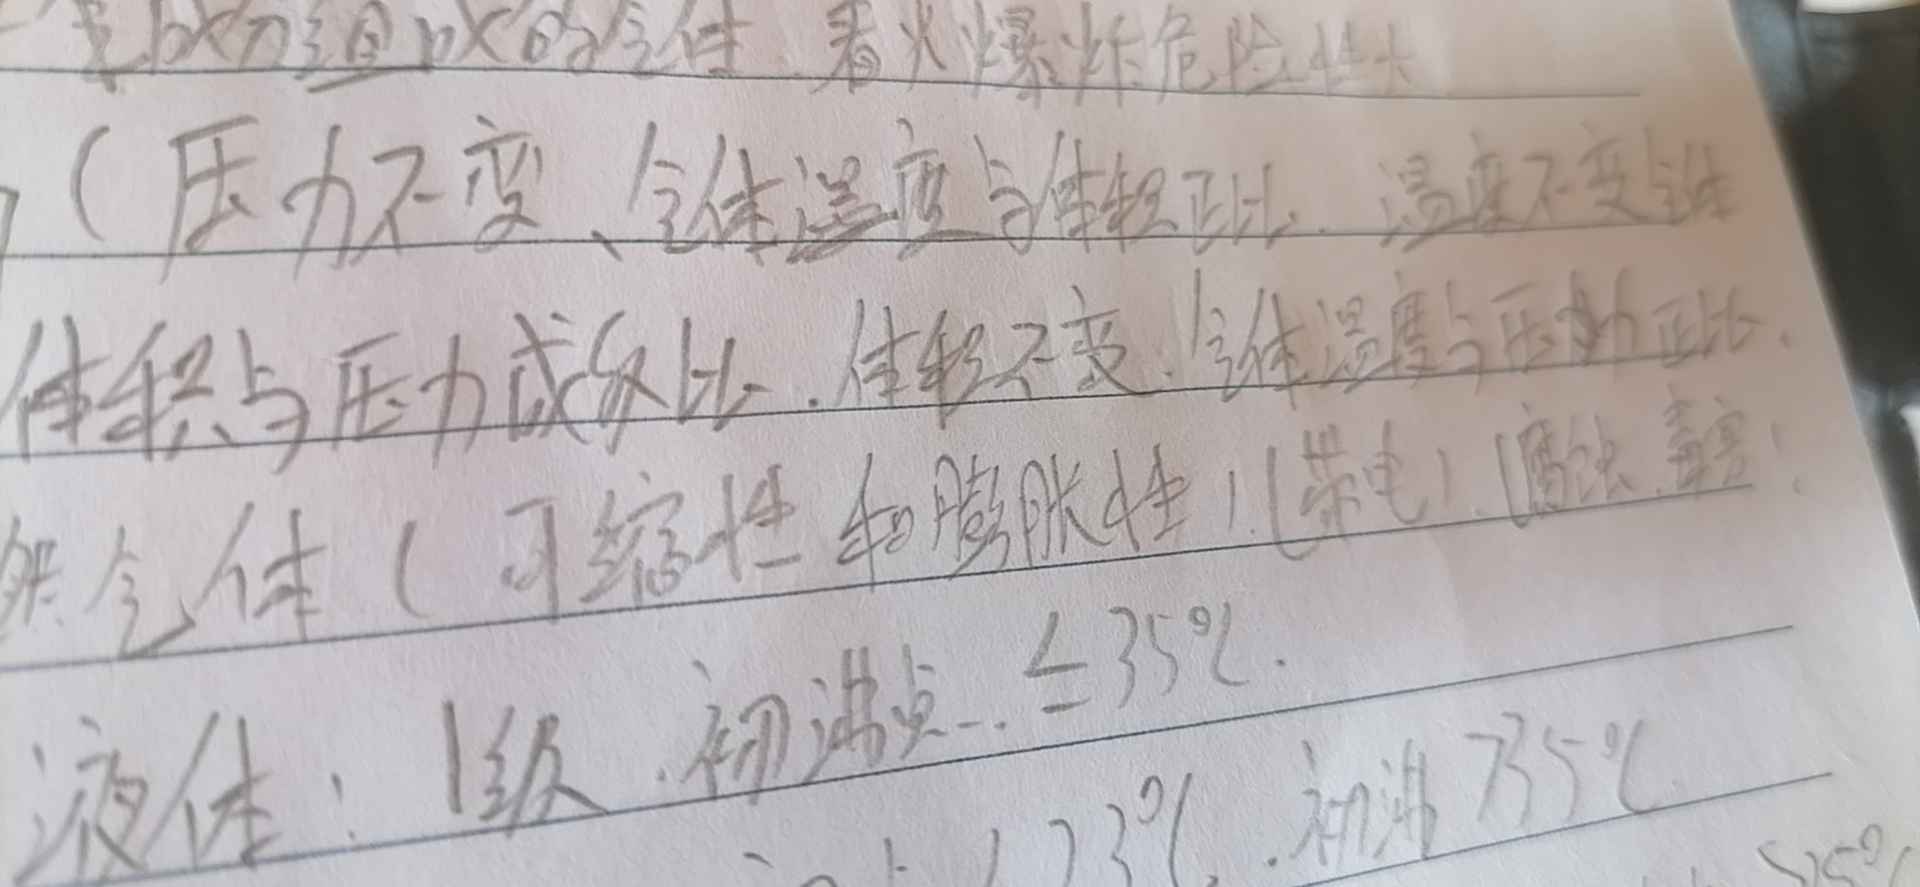 成的气体、着火爆炸危险性大
(压力不变、气体温度与体积正比、温度不变气体
体积与压力成反比、体积不变、气体温度与压力正比、
气体(可缩性和膨胀性)、(带电)、(腐蚀、毒害)
液体:1级、初沸点≤35℃.
23℃、初沸>35℃